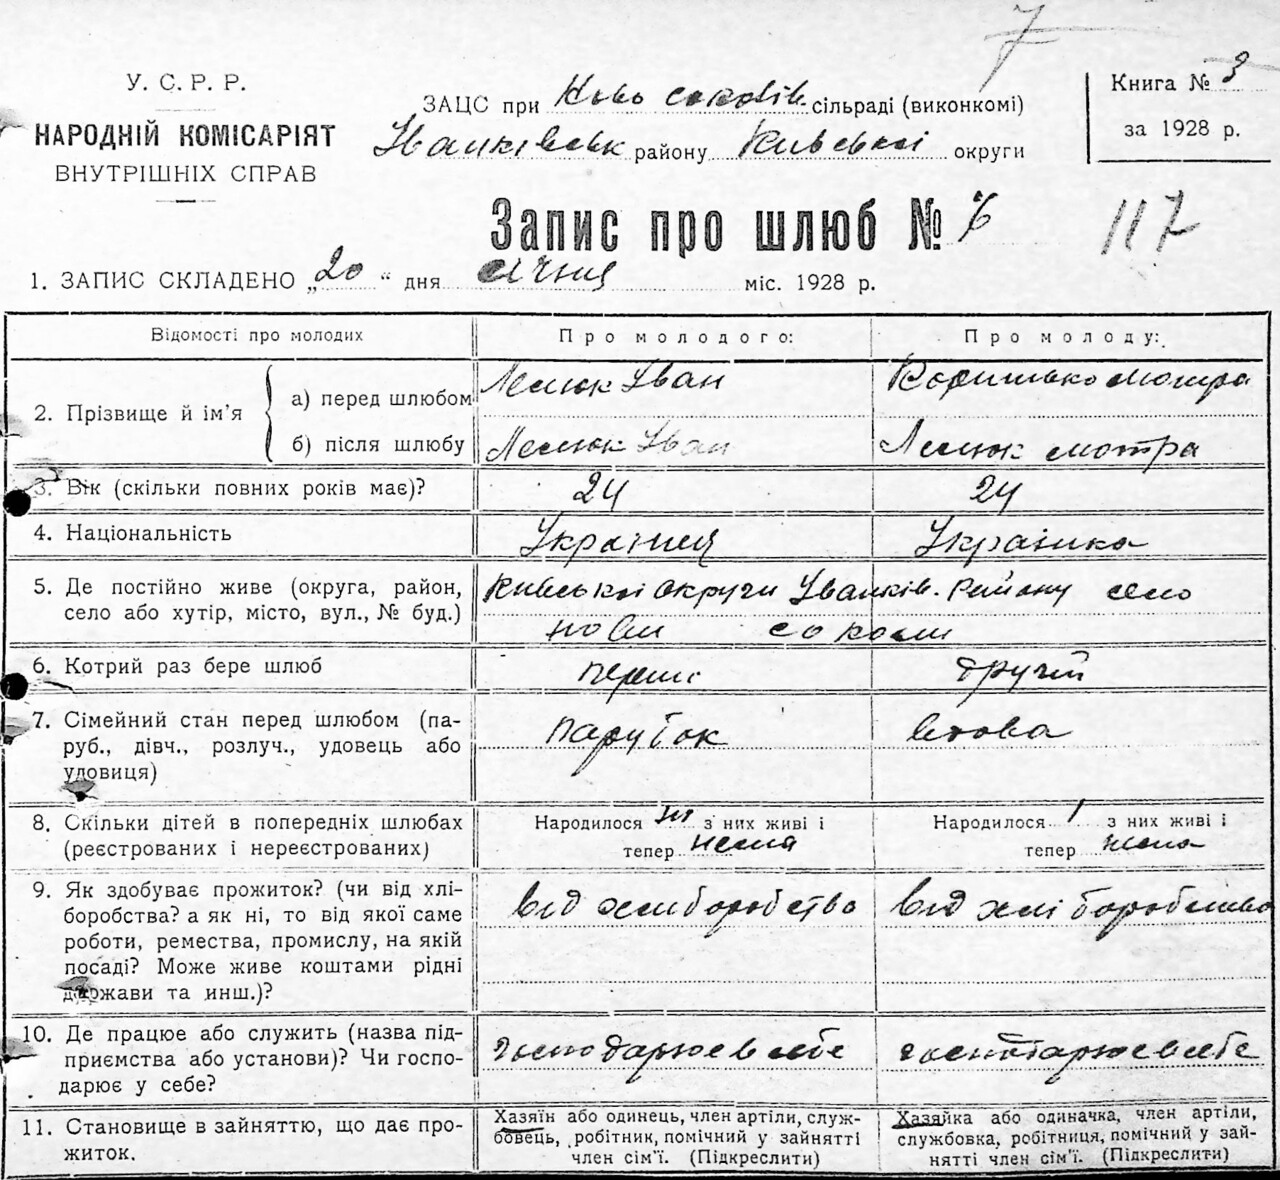 7
У. С. Р. Р.
НАРОДНІЙ КОМІСАРІЯТ
ВНУТРІШНІХ СПРАВ
ЗАЦС при Ново соколів. сільраді (виконкомі)
Іванківськ району Київської округи
Книга № 3
за 1928 р.
Запис про шлюб № 6
117
1. ЗАПИС СКЛАДЕНО „20“ дня січня міс. 1928 р.
Відомості про молодих
Про молодого:
Про молоду:
2. Прізвище й ім'я
а) перед шлюбом
Іван
Мотра
б) після шлюбу
Іван
Мотра
3. Вік (скільки повних років має)?
24
24
4. Національність
Українец
Українка
5. Де постійно живе (округа, район,
село або хутір, місто, вул., № буд.)
Київської округи Іванків. Району село
нови соколи
6. Котрий раз бере шлюб
перши
другій
7. Сімейний стан перед шлюбом (па-
руб., дівч., розлуч., удовець або
удовиця)
парубок
вдова
8. Скільки дітей в попередніх шлюбах
(реєстрованих і нереєстрованих)
Народилося з них живі і
тепер нема
Народилося 1 з них живі і
тепер нема
9. Як здобуває прожиток? (чи від хлі-
боробства? а як ні, то від якої саме
роботи, ремества, промислу, на якій
посаді? Може живе коштами рідні
держави та инш.)?
від хлиборобство
від хліборобство
10. Де працює або служить (назва під-
приємства або установи)? Чи госпо-
дарює у себе?
господарює в себе
господарює в себе
11. Становище в зайняттю, що дає про-
житок.
Хазяїн або одинець, член артіли, служ-
бовець, робітник, помічний у зайнятті
член сім'ї. (Підкреслити)
Хазяйка або одиначка, член артіли,
службовка, робітниця, помічний у зай-
нятті член сім'ї. (Підкреслити)